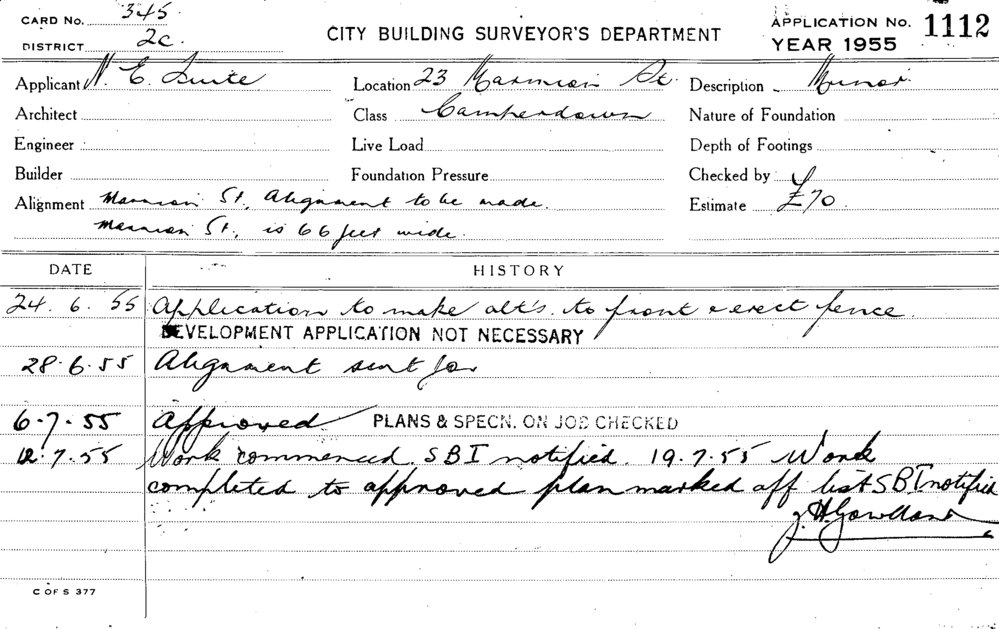 CARD No. 345
DISTRICT 2c.
CITY BUILDING SURVEYOR'S DEPARTMENT
APPLICATION No. 1112
YEAR 1955
Applicant N. E. Location 23 Marmion St. Description Minor
Architect Class Camperdown Nature of Foundation
Engineer Live Load Depth of Footings
Builder Foundation Pressure Checked by
Alignment Marmion St. Alignment to be made. Estimate £70
Marmion St., is 66 feet wide.
DATE HISTORY
24.6.55 Application to make alt's. to front & erect fence.
DEVELOPMENT APPLICATION NOT NECESSARY
28.6.55 Alignment sent for
6.7.55 Approved PLANS & SPECN. ON JOB CHECKED
12.7.55 Work commenced. SBI notified. 19.7.55 Work
completed to approved plan marked off list SBI notified
C OF S 377